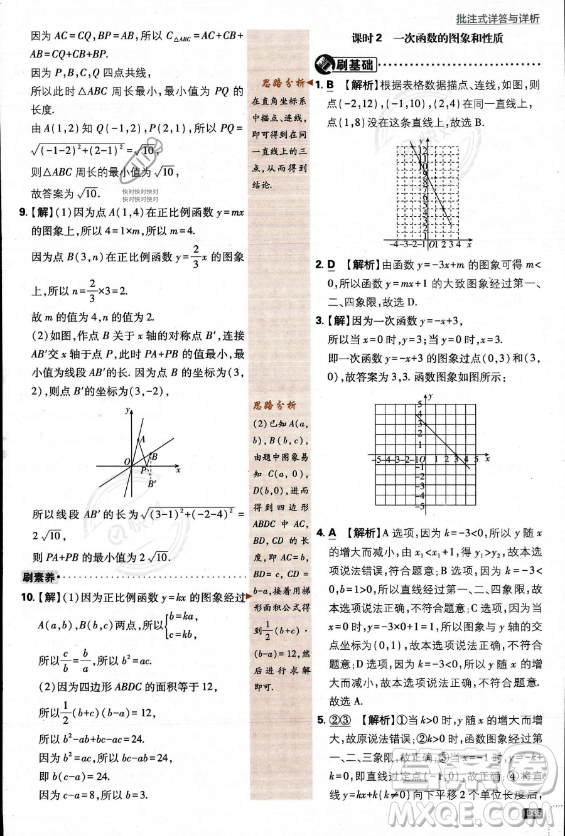 批注式详答与详析
因为 AC=CQ,BP=AB,所以 C△ABC=AC+CB+
AB=CQ+CB+BP.
因为 P,B,C,Q 四点共线,
所以此时△ABC 周长最小,最小值为 PQ 的
长度.
由 A(1,2)知 Q(-1,2),P(2,1),所以 PQ=
√(-1-2)²+(2-1)²=√10,
则△ABC 周长的最小值为√10,
故答案为√10.
9.【解】(1)因为点 A(1,4)在正比例函数 y=mx
的图象上,所以 4=1×m,所以 m=4.
因为点 B(3,n)在正比例函数 y=2/3x 的图象
上,所以 n=2/3×3=2.
故 m 的值为 4,n 的值为 2.
(2)如图,作点 B 关于 x 轴的对称点 B′,连接
AB′交 x 轴于点 P,此时 PA+PB 的值最小,最
小值为线段 AB′的长.因为点 B 的坐标为(3,
2),则点 B′的坐标为(3,-2),
y
A
B
O
P
x
B′
所以线段 AB′的长为√(3-1)²+(-2-4)²=
2√10,
则 PA+PB 的最小值为 2√10.
刷素养
10.【解】(1)因为正比例函数 y=kx 的图象经过
A(a,b),B(b,c)两点,所以{b=ka,
c=kb,
所以c/b=b/a,所以 b²=ac.
(2)因为四边形 ABDC 的面积等于 12,
所以1/2(b+c)(b-a)=12,
所以 b²-ab+bc-ac=24.
因为 b²=ac,所以 bc-ab=24,
即 b(c-a)=24.
因为 c-a=8,所以 b=3.
思路分析
在直角坐标系
中描点、连线,
即可得到在同
一直线上的三
点,从而得到
结论.
思路分析
(2)已知 A(a,
b),B(b,c),
由题中图象易
知 C(0,a),
D(0,b),进而
得到四边形
ABDC 中 AC,
BD,CD 的长
度,即 AC=a,
BD=b,CD=
b-a,接着用梯
形面积公式得
到1/2(b+c)·
(b-a)=12,然
后进行求解
即可.
课时2 一次函数的图象和性质
刷基础
1. B 【解析】根据表格数据描点、连线,如图,则
点(-2,12),(-1,10),(2,4)在同一直线上,
点(1,8)没在这条直线上,故选 B.
-4-3-2-1O1 2 3 4 x
2. D 【解析】由函数 y=-3x+m 的图象可得 m<
0,所以函数 y=mx+1 的大致图象经过第一、
二、四象限,故选 D.
3.【解】因为一次函数 y=-x+3,
所以当 x=0 时,y=3;当 y=0 时,x=3,
即一次函数 y=-x+3 的图象过点(0,3)和(3,
0),故答案为 3,3. 函数图象如图所示:
-5-4-3-2-1O 1 2 3 4 5 x
4. A 【解析】A 选项,因为 k=-3<0,所以 y 随 x
的增大而减小,由 x₁<x₂+1,得 y₁>y₂,故本选
项说法错误,符合题意;B 选项,因为 k=-3<0,
b=1>0,所以直线经过第一、二、四象限,故本
选项说法正确,不符合题意;C 选项,因为当
x=0 时,y=-3×0+1=1,所以图象与 y 轴的交
点坐标为(0,1),故本选项说法正确,不符合题
意;D 选项,因为 k=-3<0,所以 y 随 x 的增大
而减小,故本选项说法正确,不符合题意.故选
A.
5. ②③ 【解析】①当 k>0 时,y 随 x 的增大而增
大,故原说法错误;②当 k>0 时,函数图象经过第
一、二、三象限,故正确;③当 x=-1 时,y=
0,即直线过定点(-1,0),故正确;④将直
线 y=kx+k(k≠0)向下平移 2 个单位长度后,